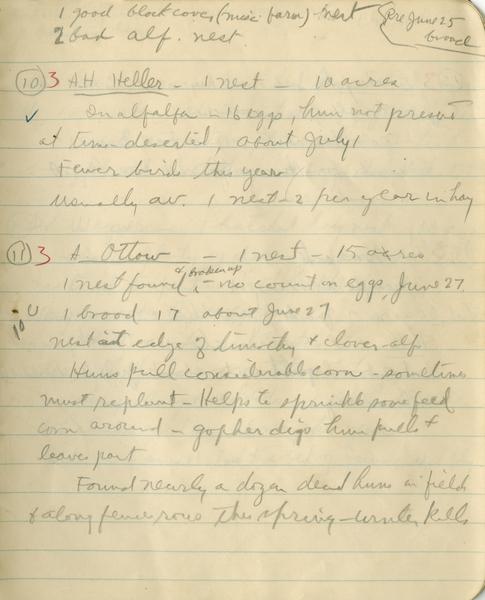 1 good block cover (music farm) nest
2 bad alf. nest
Pre June 25
brood
10 3 A.H. Heller - 1 nest - 10 acres
In alfalfa - 16 eggs, hun not present
at time deserted, about July 1
Fewer birds this year
Usually av. 1 nest - 2 per year in hay
11 3 A. Ottow - 1 nest - 15 acres
1 nest found & broken up - no count on eggs, June 27
10 U 1 brood 17 about June 27
nest at edge of timothy & clover-alf
Huns pull considerable corn - sometimes
must replant - Helps to sprinkle some feed
corn around - gopher digs hun pulls &
leaves part
Found nearly a dozen dead huns in fields
& along fence rows this spring - winter kills